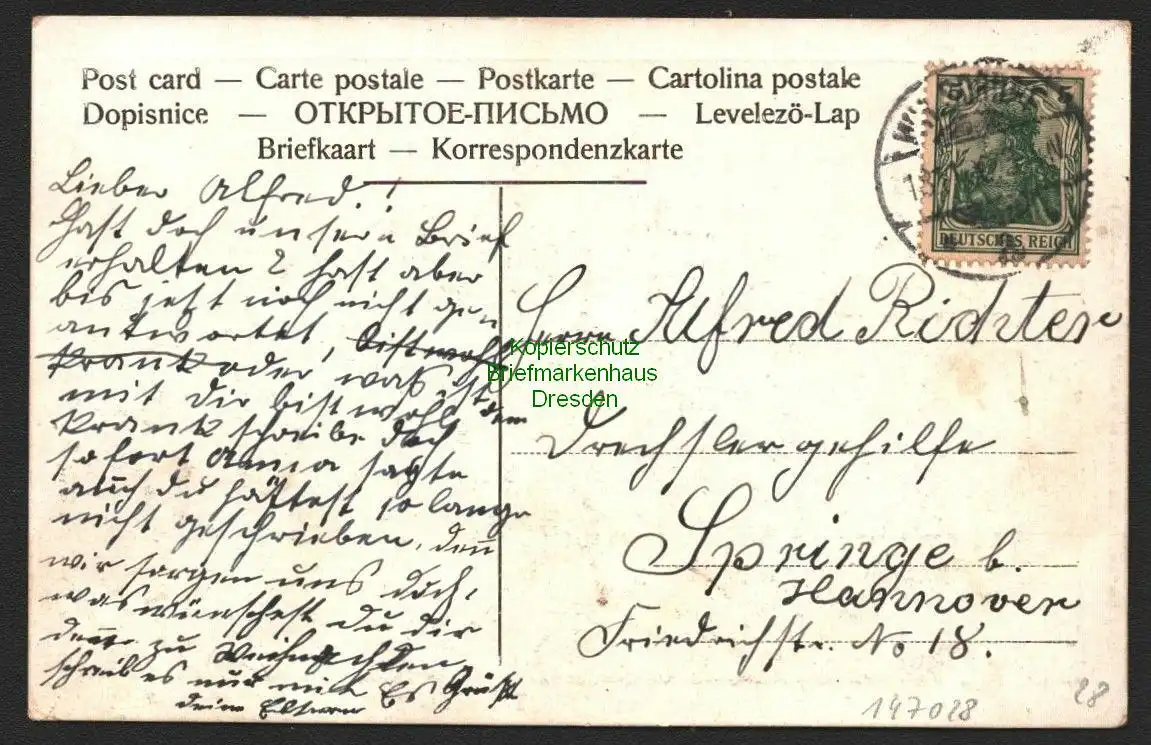 Post card — Carte postale — Postkarte — Cartolina postale
Dopisnice — ОТКРЫТОЕ-ПИСЬМО — Levelezö-Lap
Briefkaart — Korrespondenzkarte
DEUTSCHES REICH
Lieber Alfred!
Hast doch unsern Brief
erhalten? hast aber
bis jetzt noch nicht ge
antwortet, bist wohl
krank oder was ist
mit dir bist wohl denn
krank schreibe doch
sofort Anna sagte
auch du hättest so lange
nicht geschrieben, den
wir sorgen uns doch,
was wünschest du dir
denn zu Weihnachten,
schreib es nur mir Es Grüßt
deine Eltern
Herrn Alfred Richter
Drechslergehilfe
Springe b.
Hannover
Friedrichstr. No 18.
Kopierschutz
Briefmarkenhaus
Dresden
147028
28